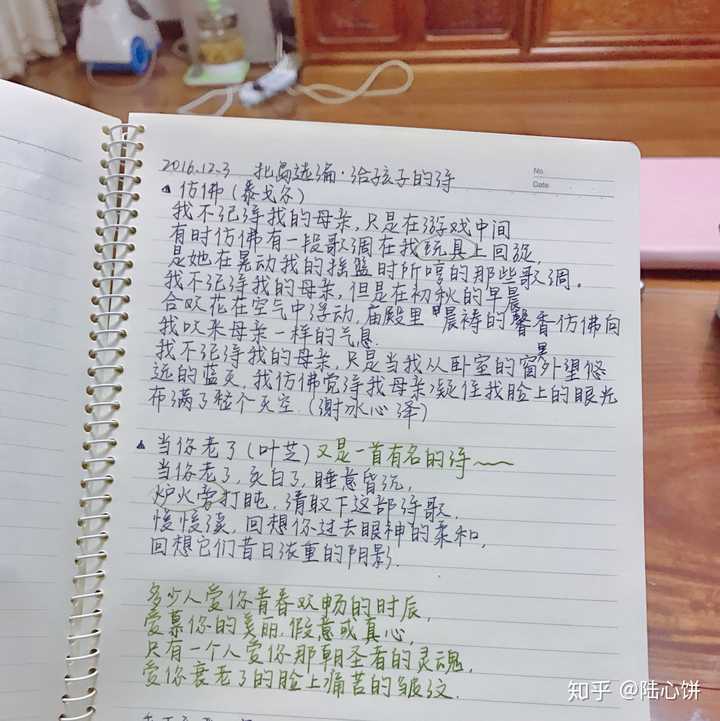 2016.12.3 北岛选编·给孩子的诗
No.
Date
▲ 仿佛(泰戈尔)
我不记得我的母亲,只是在游戏中间
有时仿佛有一段歌调在我玩具上回旋,
是她在晃动我的摇篮时所哼的那些歌调。
我不记得我的母亲,但是在初秋的早晨
合欢花在空气中浮动,庙殿里晨祷的馨香仿佛向
我吹来母亲一样的气息.
我不记得我的母亲,只是当我从卧室的窗里外望悠
远的蓝天,我仿佛觉得我母亲凝住我脸上的眼光
布满了整个天空.(谢冰心 译)
▲ 当你老了(叶芝)又是一首有名的诗~~
当你老了,灰白了,睡意昏沉,
炉火旁打盹,请取下这部诗歌.
慢慢读,回想你过去眼神的柔和,
回想它们昔日浓重的阴影.
多少人爱你青春欢畅的时辰,
爱慕你的美丽,假意或真心,
只有一个人爱你那朝圣者的灵魂,
爱你衰老了的脸上痛苦的皱纹.
知乎 @陆心饼